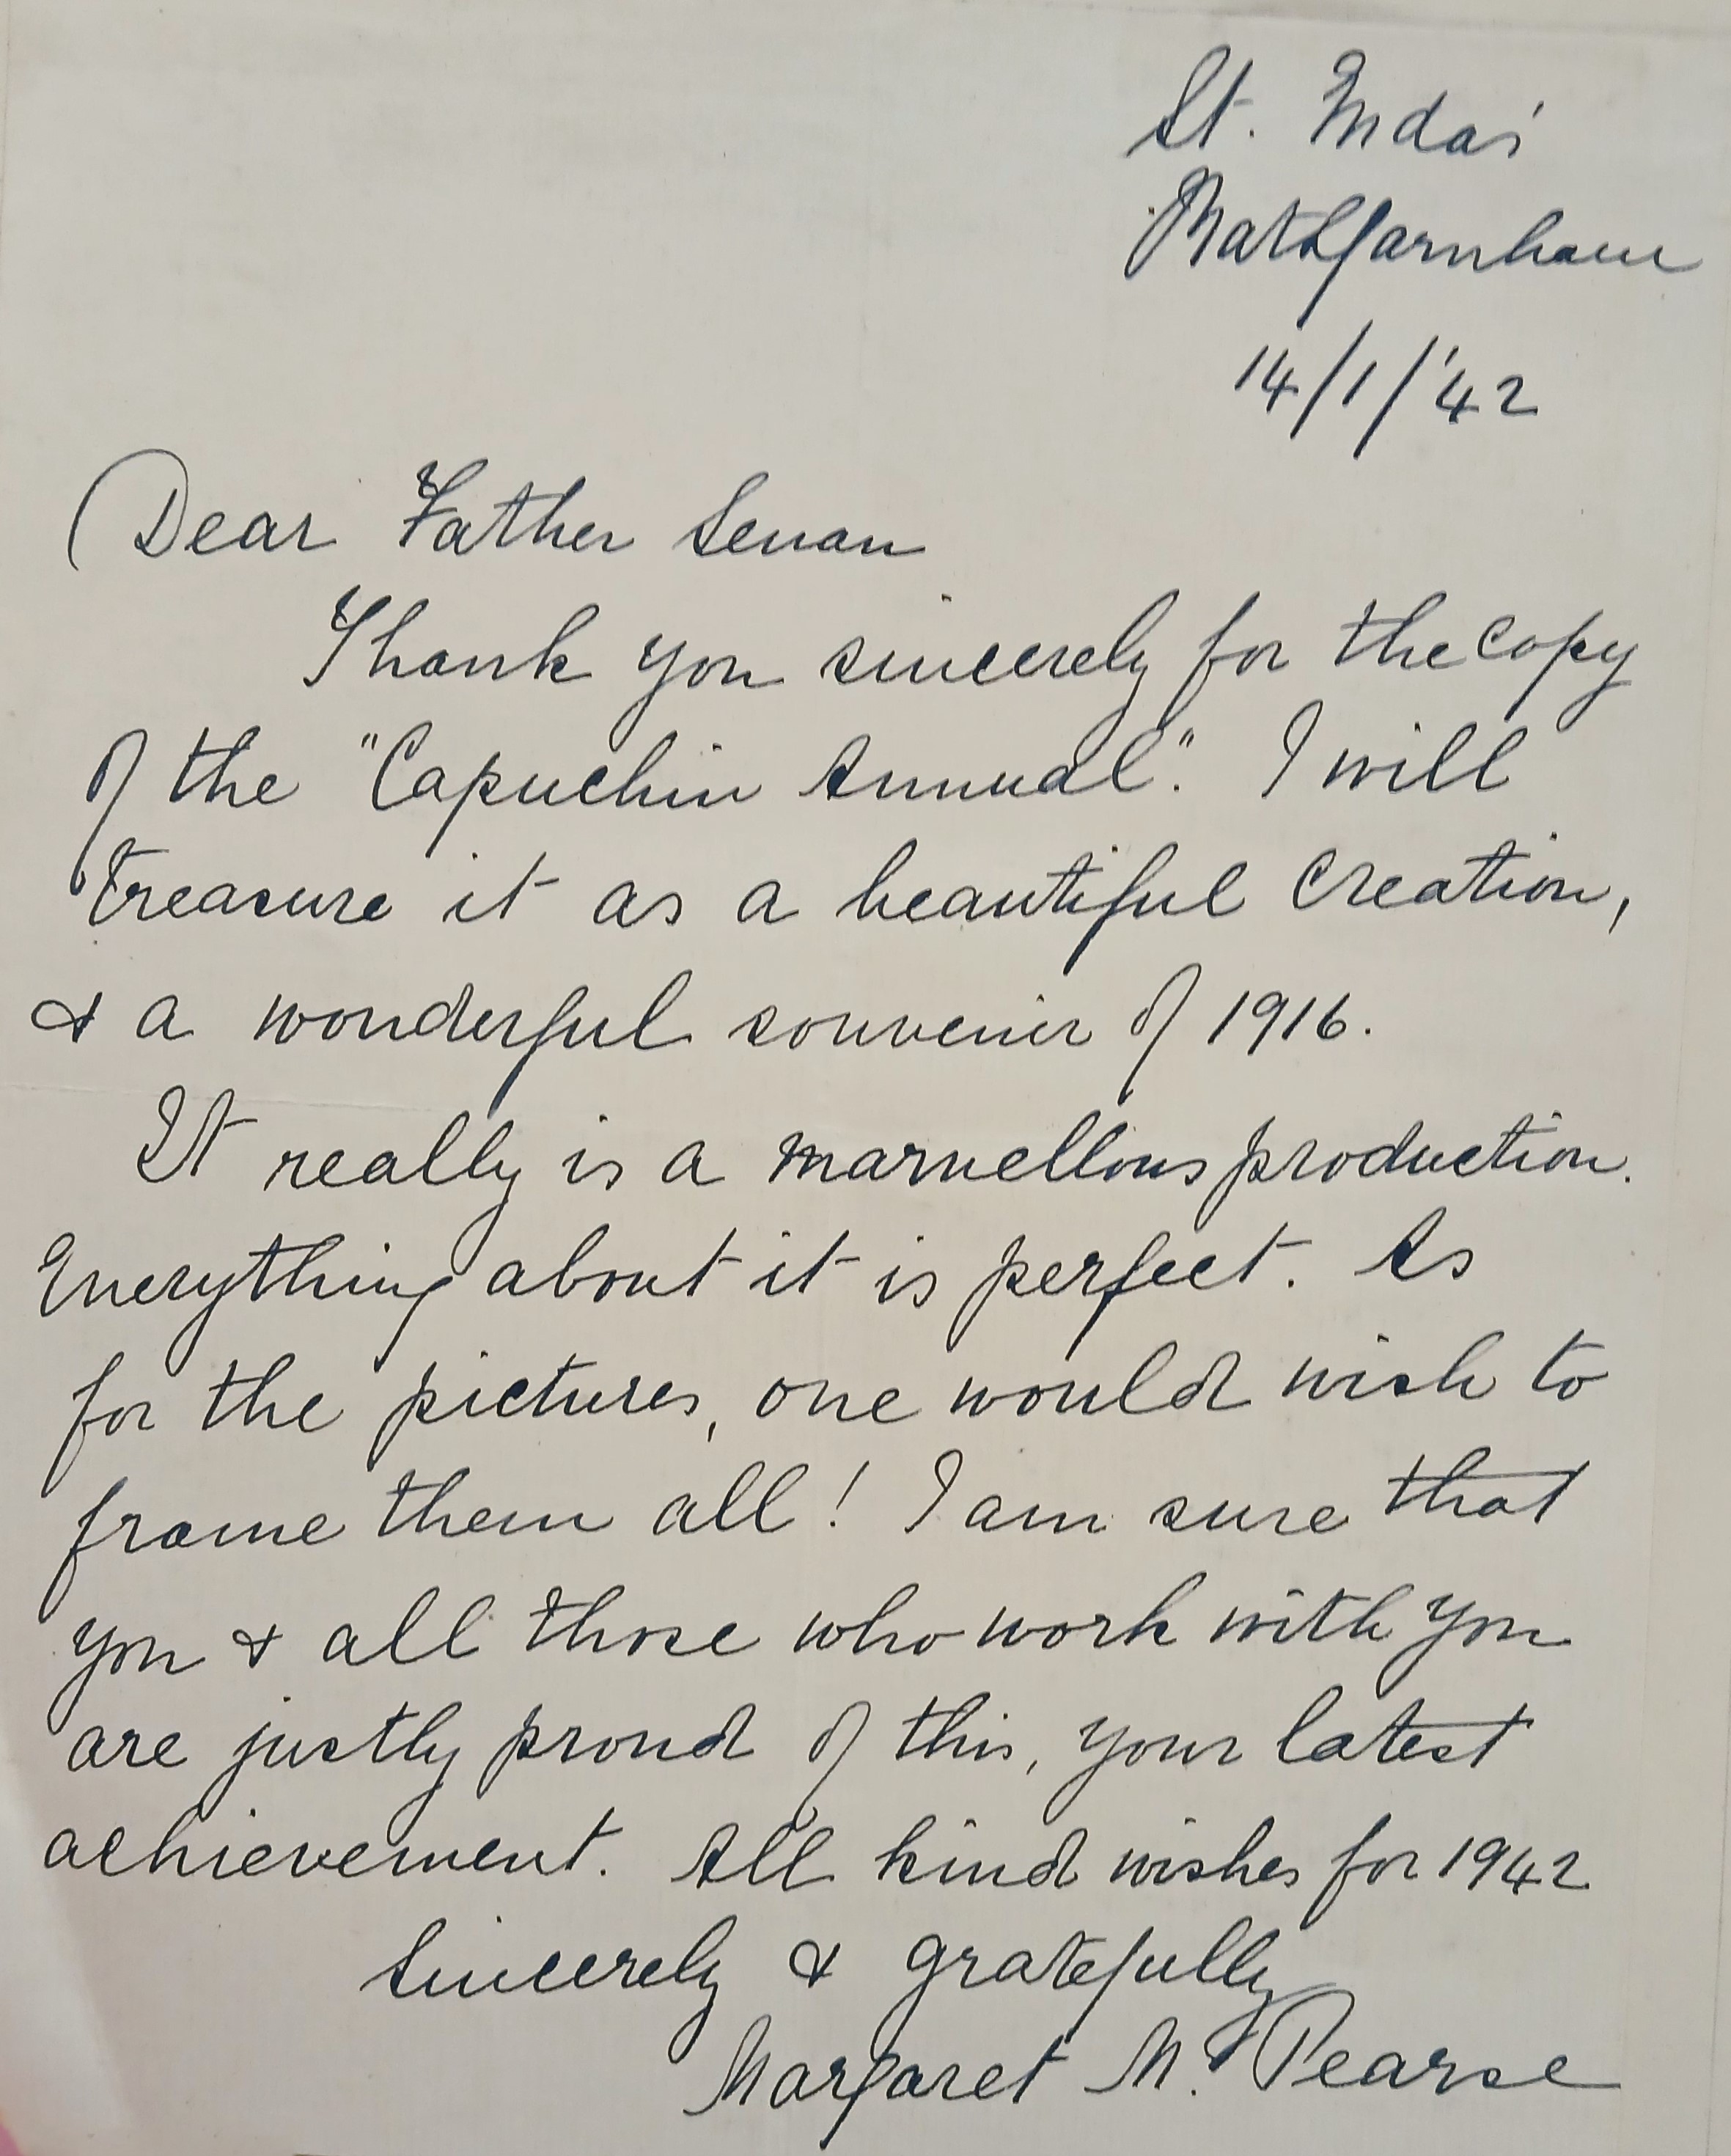 St. Enda's
Rathfarnham
14/1/'42
Dear Father Senan
Thank you sincerely for the copy
of the "Capuchin Annual". I will
treasure it as a beautiful creation,
& a wonderful souvenir of 1916.
It really is a marvellous production.
Everything about it is perfect. As
for the pictures, one would wish to
frame them all! I am sure that
you & all those who work with you
are justly proud of this, your latest
achievement. All kind wishes for 1942
Sincerely & gratefully
Margaret M. Pearse